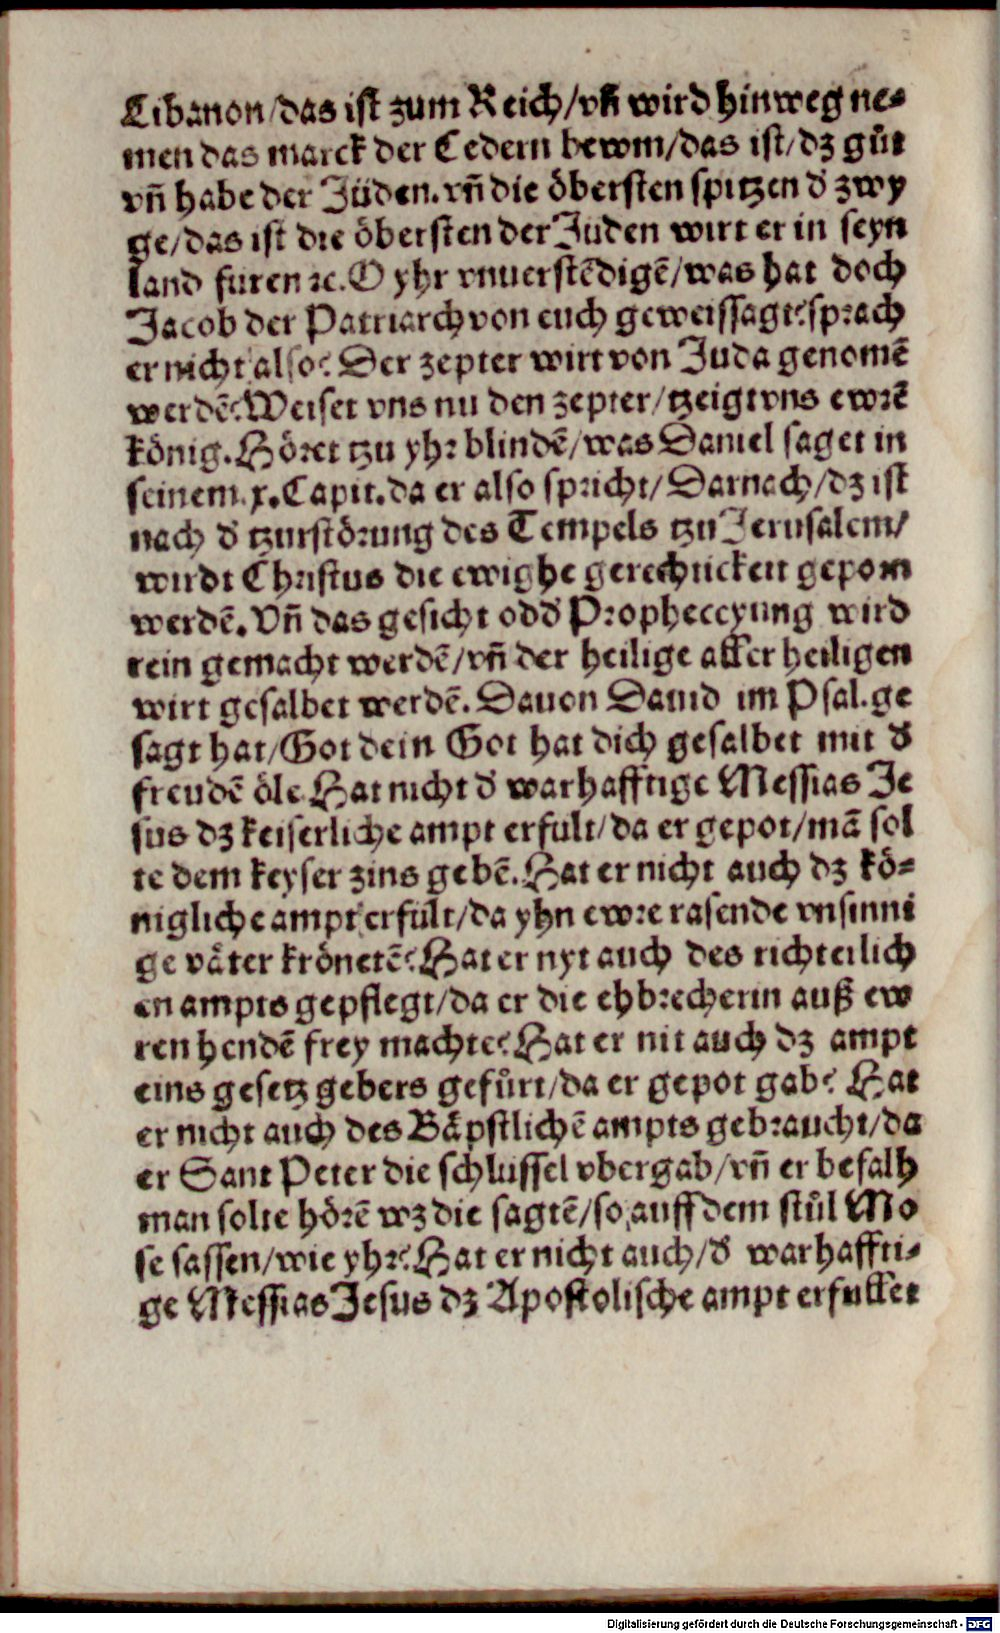 Libanon/das ist zum Reich/vñ wird hinweg ne-
men das marck der Cedern bewm/das ist/dz gůt
vñ habe der Jüden. vñ die öbersten spitzen d' zwy
ge/das ist die öbersten der Juden wirt er in seyn
land furen ꝛc. O yhr vnuerstẽdigẽ/was hat doch
Jacob der Patriarch von euch geweissagt? sprach
er nicht also? Der zepter wirt von Juda genomẽ
werdẽ? Weiset vns nu den zepter/tzeigt vns ewrẽ
könig. Höret tzu yhr blindẽ/was Daniel saget in
seinem .x. Capit. da er also spricht/Darnach/dz ist
nach d' tzurstörung des Tempels tzu Jerusalem/
wirdt Christus die ewighe gerechtickeit geporn
werdẽ. Vñ das gesicht odd' Propheccyung wird
rein gemacht werdẽ/vñ der heilige aller heiligen
wirt gesalbet werdẽ. Dauon Dauid im Psal. ge
sagt hat/Got dein Got hat dich gesalbet mit d'
freudẽ öle. Hat nicht d' warhafftige Messias Je
sus dz keiserliche ampt erfult/da er gepot/mã sol
te dem keyser zins gebẽ. Hat er nicht auch dz kö-
nigliche ampt erfült/da yhn ewre rasende vnsinni
ge väter krönetẽ? Hat er nyt auch des richteilich
en ampts gepflegt/da er die ehbrecherin auß ew
ren hendẽ frey machte? Hat er nit auch dz ampt
eins gesetz gebers gefůrt/da er gepot gab? Hat
er nicht auch des Bäpstlichẽ ampts gebraucht/da
er Sant Peter die schlussel vbergab/vñ er befalh
man solte hörẽ wz die sagtẽ/so auff dem stůl Mo
se sassen/wie yhr? Hat er nicht auch/d' warhaffti-
ge Messias Jesus dz Apostolische ampt erfullet
Digitalisierung gefördert durch die Deutsche Forschungsgemeinschaft - DFG